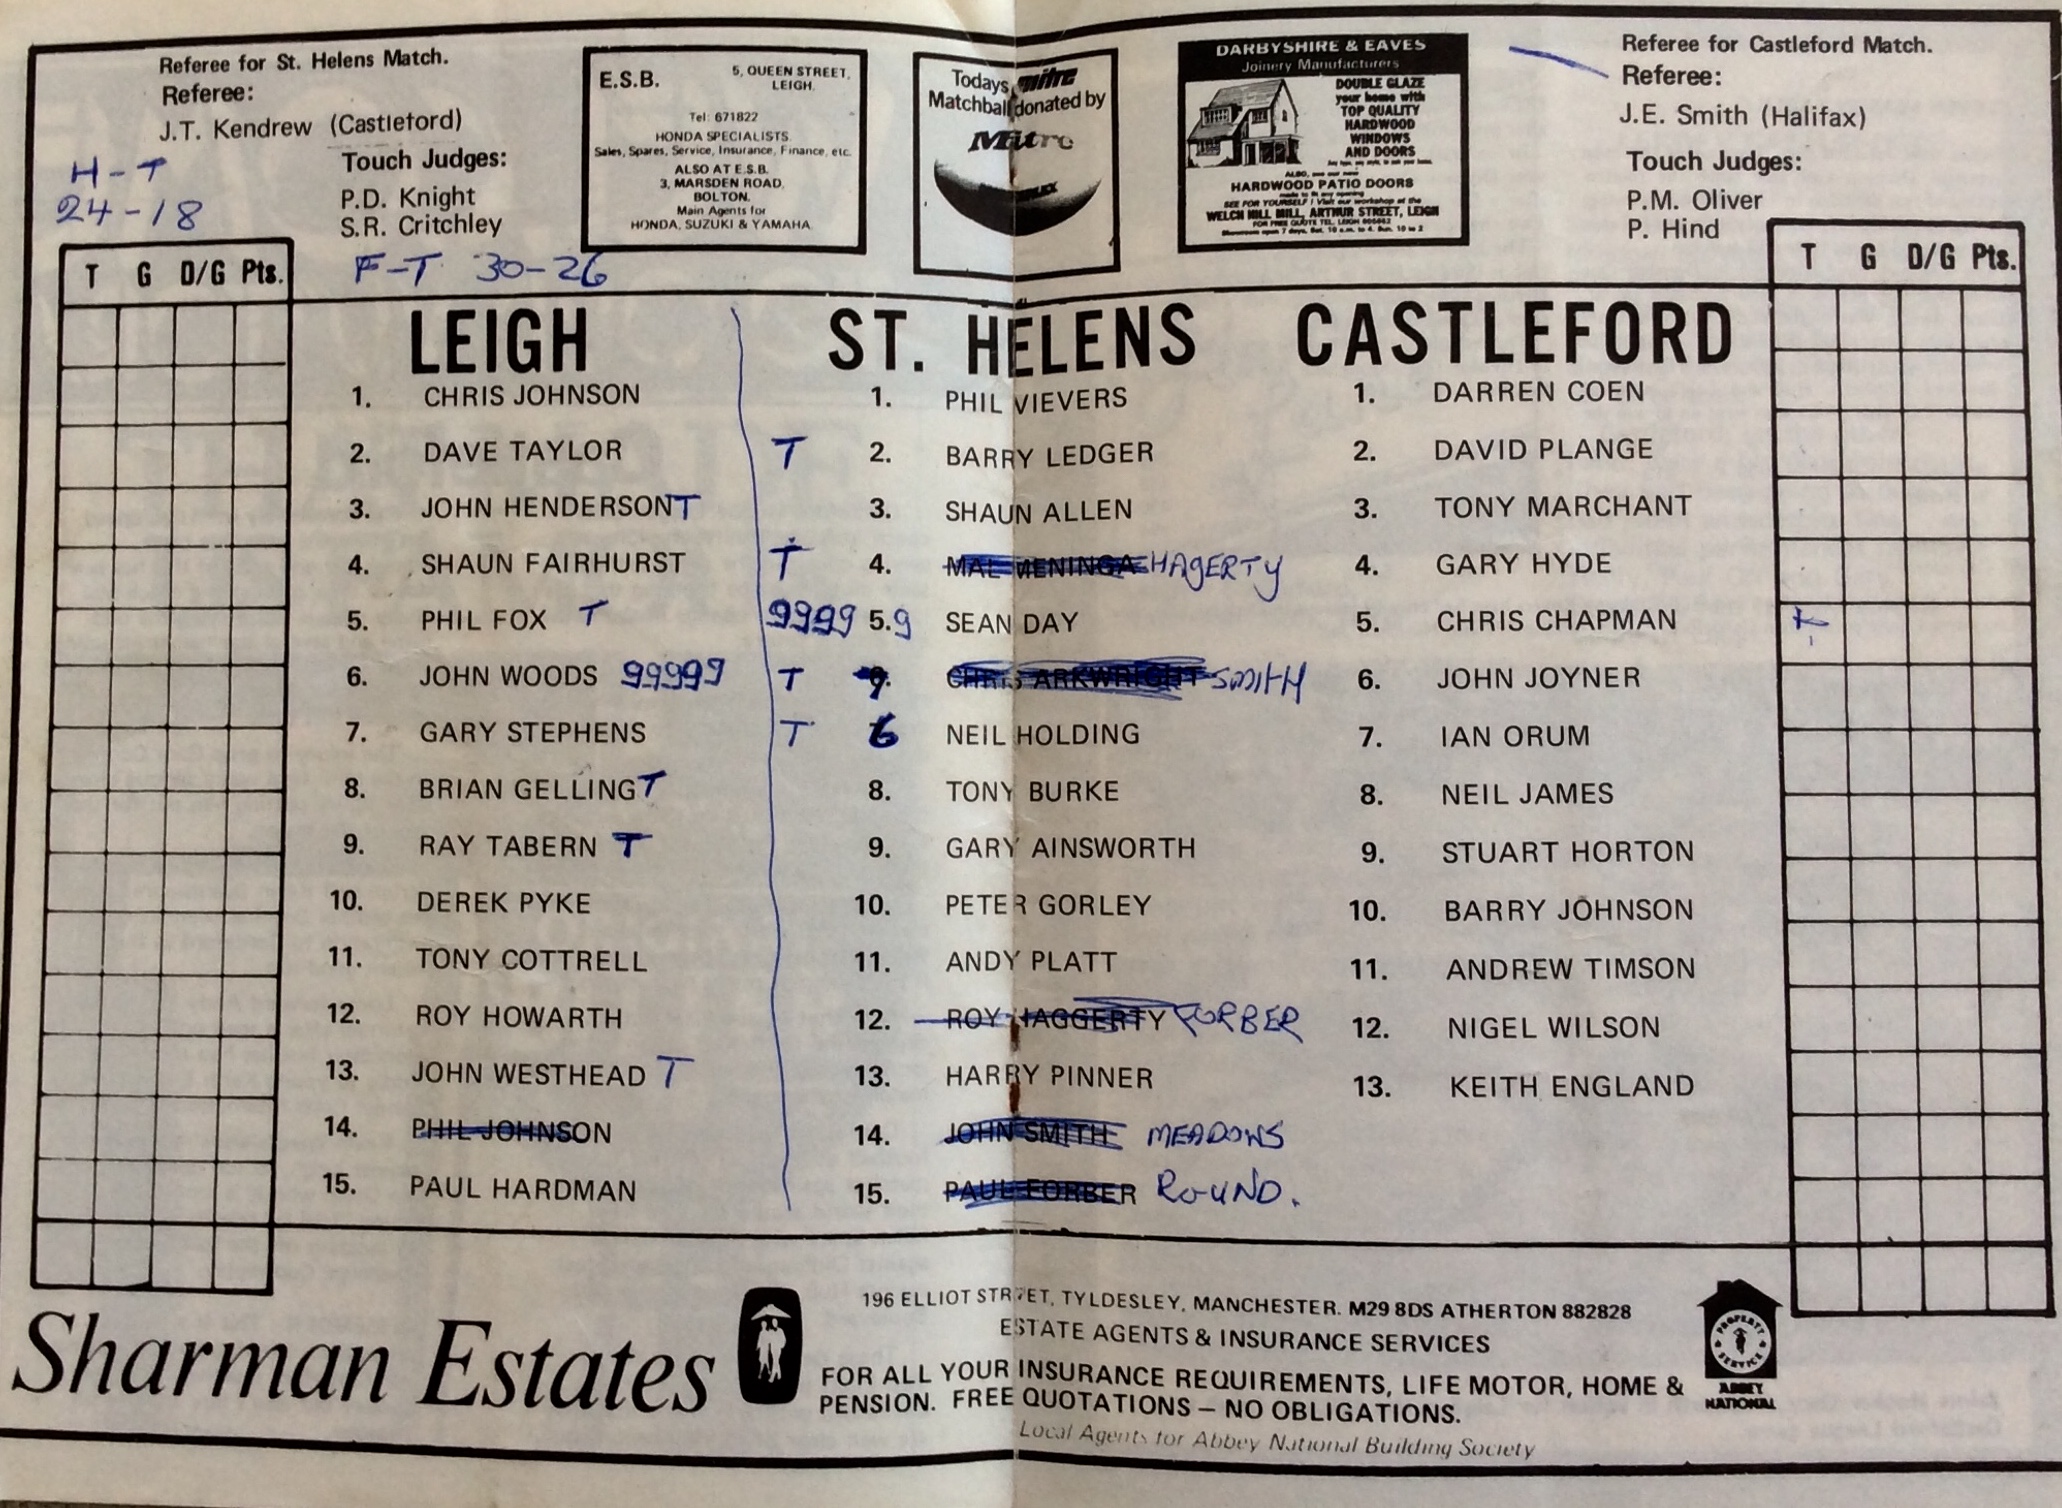 Referee for St. Helens Match.
Referee:
J.T. Kendrew (Castleford)
Touch Judges:
P.D. Knight
S.R. Critchley
H-T
24-18
F-T 30-26
E.S.B.
5, QUEEN STREET,
LEIGH.
Tel: 671822
HONDA SPECIALISTS.
Sales, Spares, Service, Insurance, Finance, etc.
ALSO AT E.S.B.
3, MARSDEN ROAD,
BOLTON.
Main Agents for
HONDA, SUZUKI & YAMAHA
Todays mitre
Matchball donated by
Mitre
DARBYSHIRE & EAVES
Joinery Manufacturers
DOUBLE GLAZE
your home with
TOP QUALITY
HARDWOOD
WINDOWS
AND DOORS
HARDWOOD PATIO DOORS
made to fit any opening
SEE FOR YOURSELF! Visit our workshop at the
WELCH HILL MILL, ARTHUR STREET, LEIGH
Referee for Castleford Match.
Referee:
J.E. Smith (Halifax)
Touch Judges:
P.M. Oliver
P. Hind
T G D/G Pts.
T G D/G Pts.
LEIGH
1. CHRIS JOHNSON
2. DAVE TAYLOR
3. JOHN HENDERSON T
4. SHAUN FAIRHURST
5. PHIL FOX T
6. JOHN WOODS 99999
7. GARY STEPHENS
8. BRIAN GELLING T
9. RAY TABERN T
10. DEREK PYKE
11. TONY COTTRELL
12. ROY HOWARTH
13. JOHN WESTHEAD T
14. PHIL JOHNSON
15. PAUL HARDMAN
ST. HELENS
1. PHIL VIEVERS
T 2. BARRY LEDGER
3. SHAUN ALLEN
T 4. MAL MENINGA HAGERTY
9999 5. 9 SEAN DAY
T 7 CHRIS ARKWRIGHT SMITH
T 6 NEIL HOLDING
8. TONY BURKE
9. GARY AINSWORTH
10. PETER GORLEY
11. ANDY PLATT
12. ROY HAGGERTY FORBER
13. HARRY PINNER
14. JOHN SMITH MEADOWS
15. PAUL FORBER ROUND.
CASTLEFORD
1. DARREN COEN
2. DAVID PLANGE
3. TONY MARCHANT
4. GARY HYDE
5. CHRIS CHAPMAN T
6. JOHN JOYNER
7. IAN ORUM
8. NEIL JAMES
9. STUART HORTON
10. BARRY JOHNSON
11. ANDREW TIMSON
12. NIGEL WILSON
13. KEITH ENGLAND
Sharman Estates
196 ELLIOT STREET, TYLDESLEY, MANCHESTER. M29 8DS ATHERTON 882828
ESTATE AGENTS & INSURANCE SERVICES
FOR ALL YOUR INSURANCE REQUIREMENTS, LIFE MOTOR, HOME &
PENSION. FREE QUOTATIONS – NO OBLIGATIONS.
Local Agents for Abbey National Building Society
PROPERTY
SERVICE
ABBEY
NATIONAL